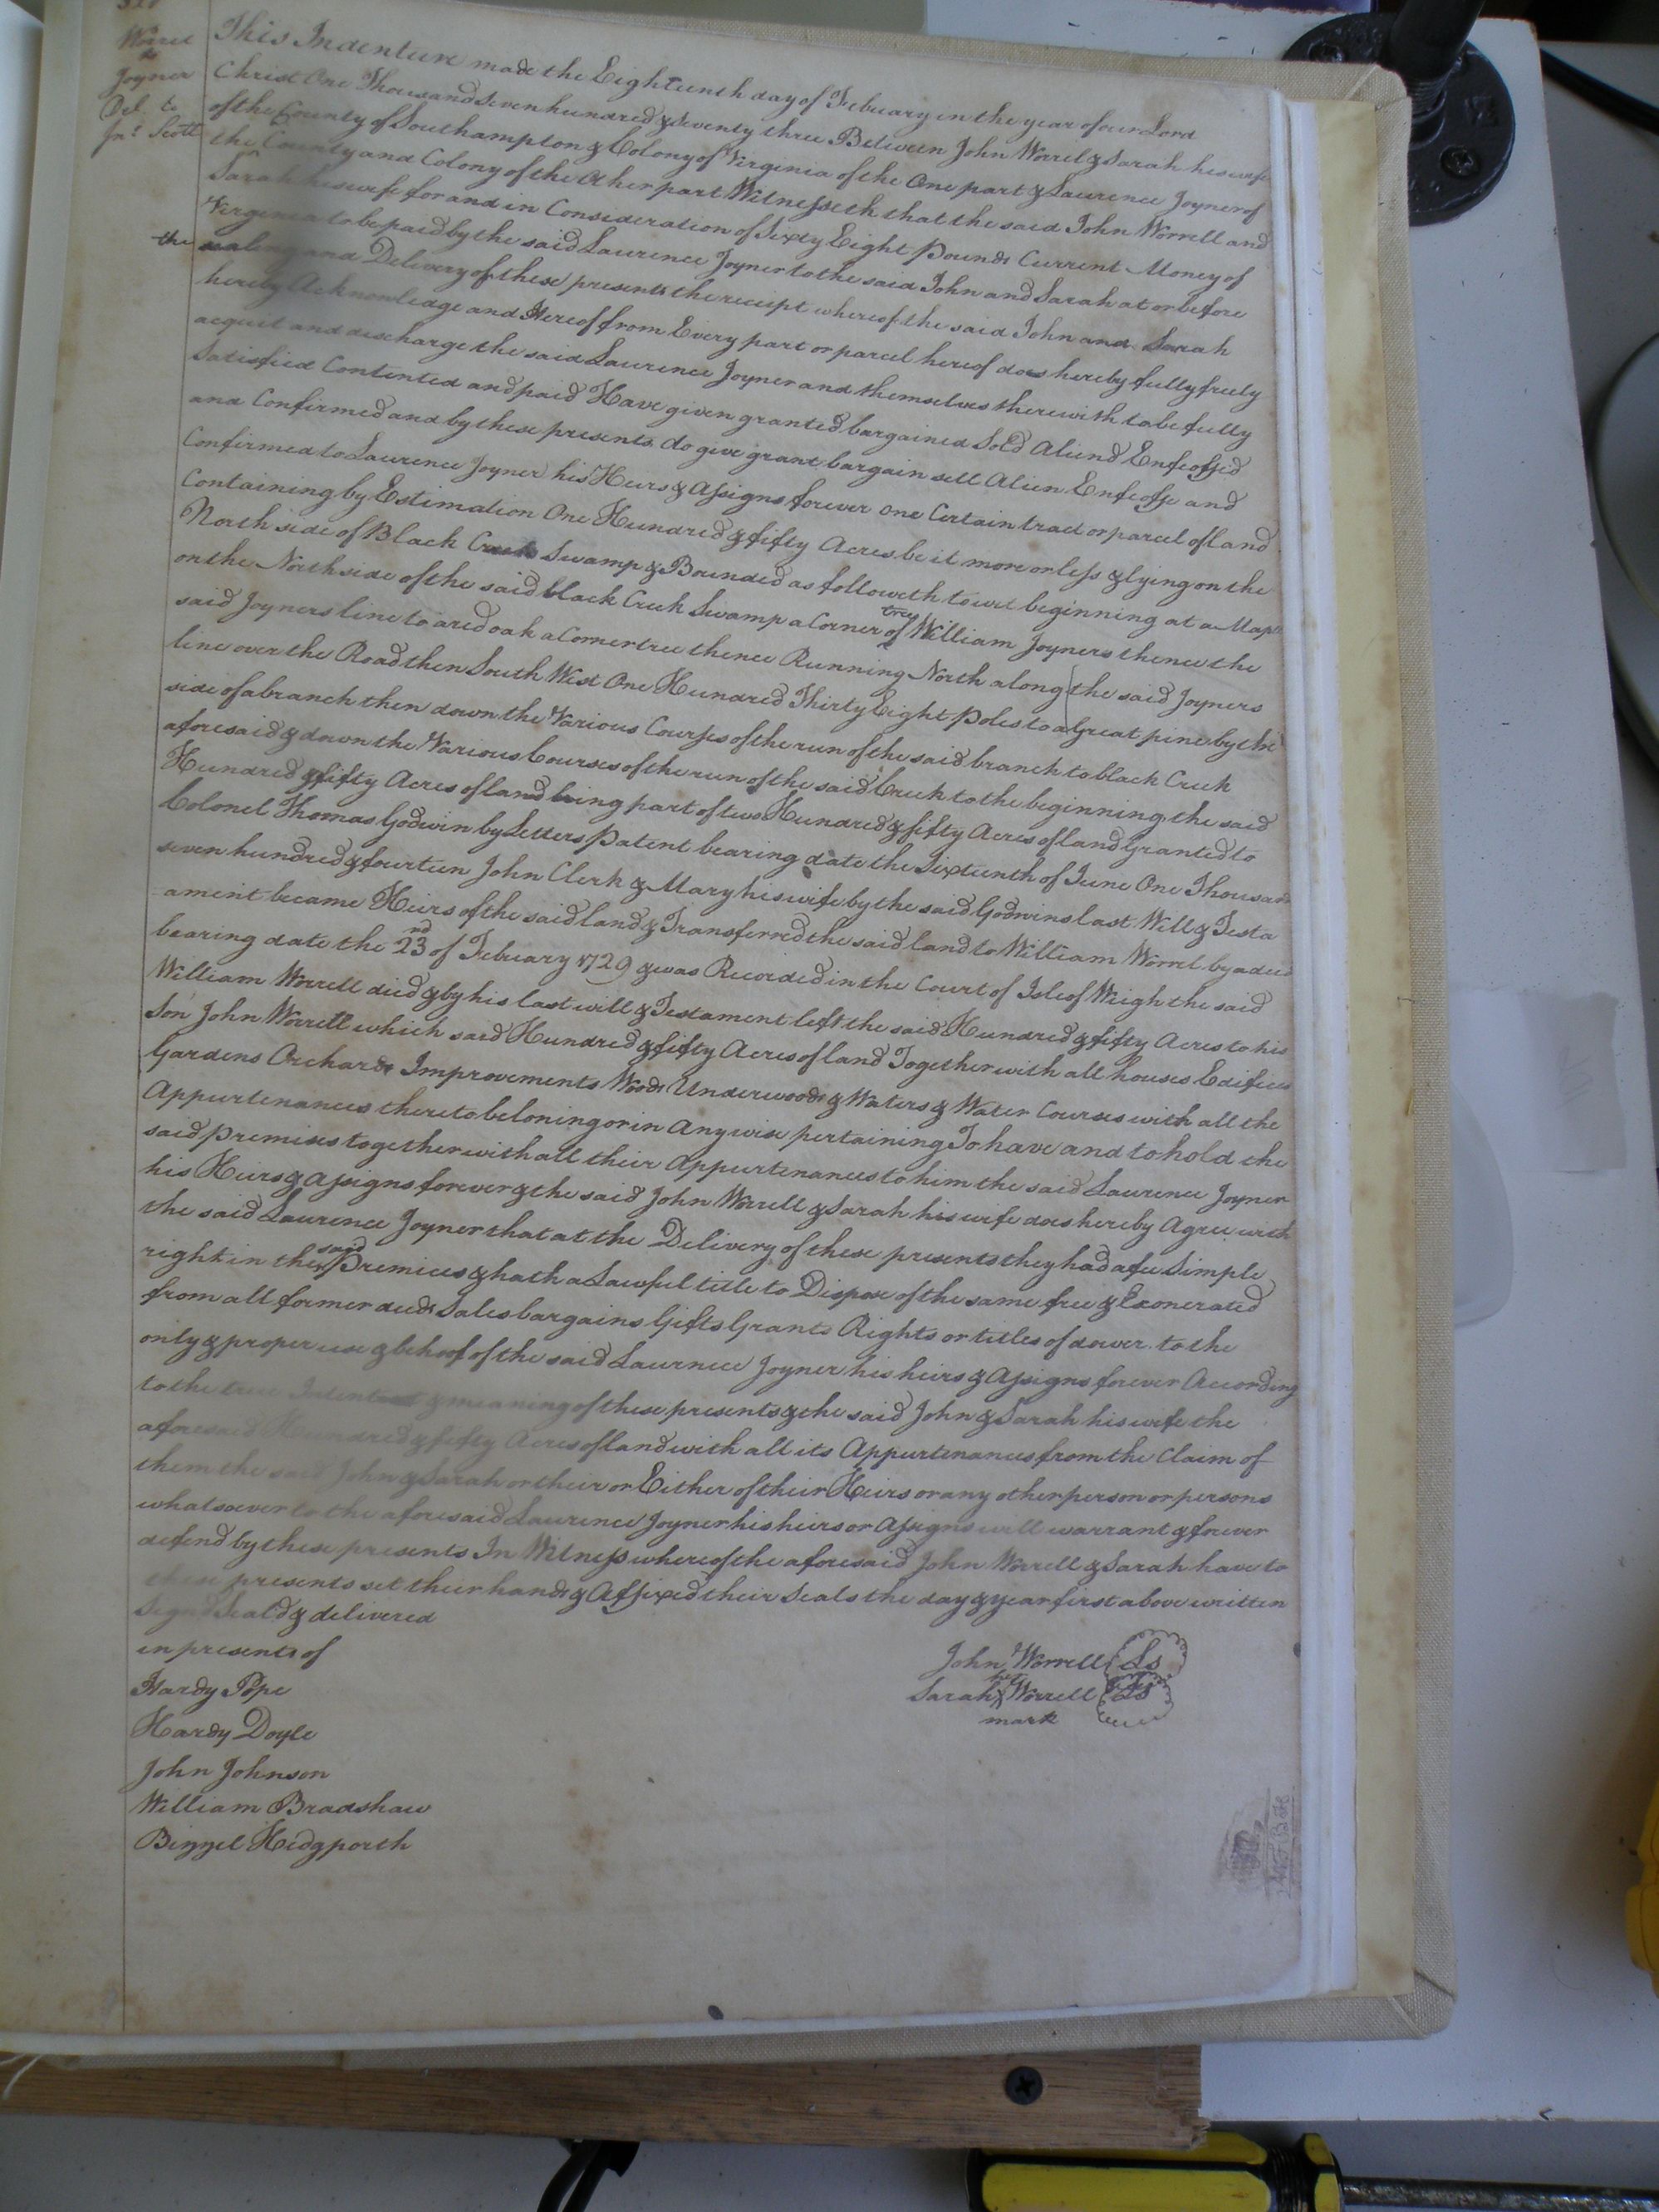 Worrel
to
Joyner
Del. to
Jnº Scott
This Indenture made the Eighteenth day of February in the year of our Lord
Christ One Thousand Seven hundred & Seventy three Between John Worrel & Sarah his wife
of the County of Southampton & Colony of Virginia of the One part & Laurence Joyner of
the County and Colony of the Other part Witnesseth that the said John Worrell and
Sarah his wife for and in Consideration of Sixty Eight Pounds Current Money of
Virginia to be paid by the said Laurence Joyner to the said John and Sarah at or before
the sealing and Delivery of these presents the receipt whereof the said John and Sarah
hereby Acknowledge and Hereof from Every part or parcel hereof does hereby fully freely
acquit and discharge the said Laurence Joyner and themselves therewith to be fully
Satisfied Contented and paid Have given granted bargained Sold Aliend Enfeoffed
and Confirmed and by these presents do give grant bargain sell Alien Enfeoffe and
Confirmed to Laurence Joyner his Heirs & Assigns forever one Certain tract or parcel of land
Containing by Estimation One Hundred & fifty Acres be it more or less & lying on the
North side of Black Creek Swamp & Bounded as followeth towit beginning at a Maple
on the North side of the said black Creek Swamp a Corner tree of William Joyners thence the
said Joyners line to a red oak a Corner tree thence Running North along the said Joyners
line over the Road then South West One Hundred Thirty Eight Poles to a Great pine by the
side of a branch then down the Various Courses of the run of the said branch to black Creek
aforesaid & down the Various Courses of the run of the said Creek to the beginning the said
Hundred & fifty Acres of land being part of two Hundred & fifty Acres of land Granted to
Colonel Thomas Godwin by Letters Patent bearing date the Sixteenth of June One Thousand
seven hundred & fourteen John Clerk & Mary his wife by the said Godwins last Will & Testa
ament became Heirs of the said land & Transferred the said land to William Worrel by a deed
bearing date the 23rd of February 1729 & was Recorded in the Court of Isle of Weigh the said
William Worrell died & by his last will & Testament left the said Hundred & fifty Acres to his
Son John Worrell which said Hundred & fifty Acres of land Together with all houses Edifices
Gardens Orchards Improvements Woods Underwoods & Waters & Water Courses with all the
Appurtenances thereto beloning or in Any wise pertaining To have and to hold the
said premises together with all their Appurtenances to him the said Laurence Joyner
his Heirs & Assigns forever & the said John Worrell & Sarah his wife does hereby Agree with
the said Laurence Joyner that at the Delivery of these presents they had a fee Simple
right in the said Premices & hath a Lawful title to Dispose of the same free & Exonerated
from all former deeds Sales bargains Gifts Grants Rights or titles of dower to the
only & proper use & behoof of the said Laurnece Joyner his heirs & Assigns forever According
to the true Intent & meaning of these presents & the said John & Sarah his wife the
aforesaid Hundred & fifty Acres of land with all its Appurtenances from the Claim of
them the said John & Sarah or their or Either of their Heirs or any other person or persons
whatsoever to the aforesaid Laurence Joyner his heirs or Assigns will warrant & forever
defend by these presents In Witness whereof the aforesaid John Worrell & Sarah have to
these presents set their hands & Affixed their Seals the day & year first above written
Signd Seald & delivered
in presents of
John Worrell Ls
Hardy Pope
Sarah her X Worrell Ls
mark
Hardy Doyle
John Johnson
William Bradshaw
Bizzel Hedgporth